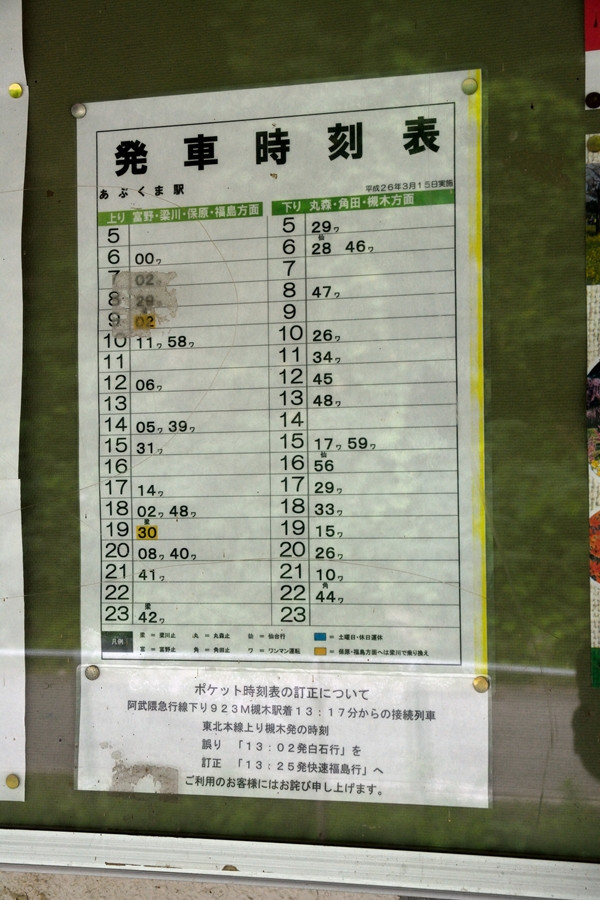 発車時刻表
あぶくま駅
平成26年3月15日実施
上り 富野・梁川・保原・福島方面
5
6 00ワ
7 02ワ
8 29ワ
9 02
10 11ワ 58ワ
11
12 06ワ
13
14 05ワ 39ワ
15 31ワ
16
17 14ワ
18 02ワ 48ワ
梁
19 30
20 08ワ 40ワ
21 41ワ
22
梁
23 42ワ
下り 丸森・角田・槻木方面
5 29ワ
仙
6 28 46ワ
7
8 47ワ
9
10 26ワ
11 34ワ
12 45
13 48ワ
14
15 17ワ 59ワ
仙
16 56
17 29ワ
18 33ワ
19 15ワ
20 26ワ
21 10ワ
角
22 44ワ
23
凡例
梁 = 梁川止 丸 = 丸森止 仙 = 仙台行 = 土曜日・休日運休
富 = 富野止 角 = 角田止 ワ = ワンマン運転 = 保原・福島方面へは梁川で乗り換え
ポケット時刻表の訂正について
阿武隈急行線下り923M槻木駅着13:17分からの接続列車
東北本線上り槻木発の時刻
誤り 「13:02発白石行」を
訂正 「13:25発快速福島行」へ
ご利用のお客様にはお詫び申し上げます。